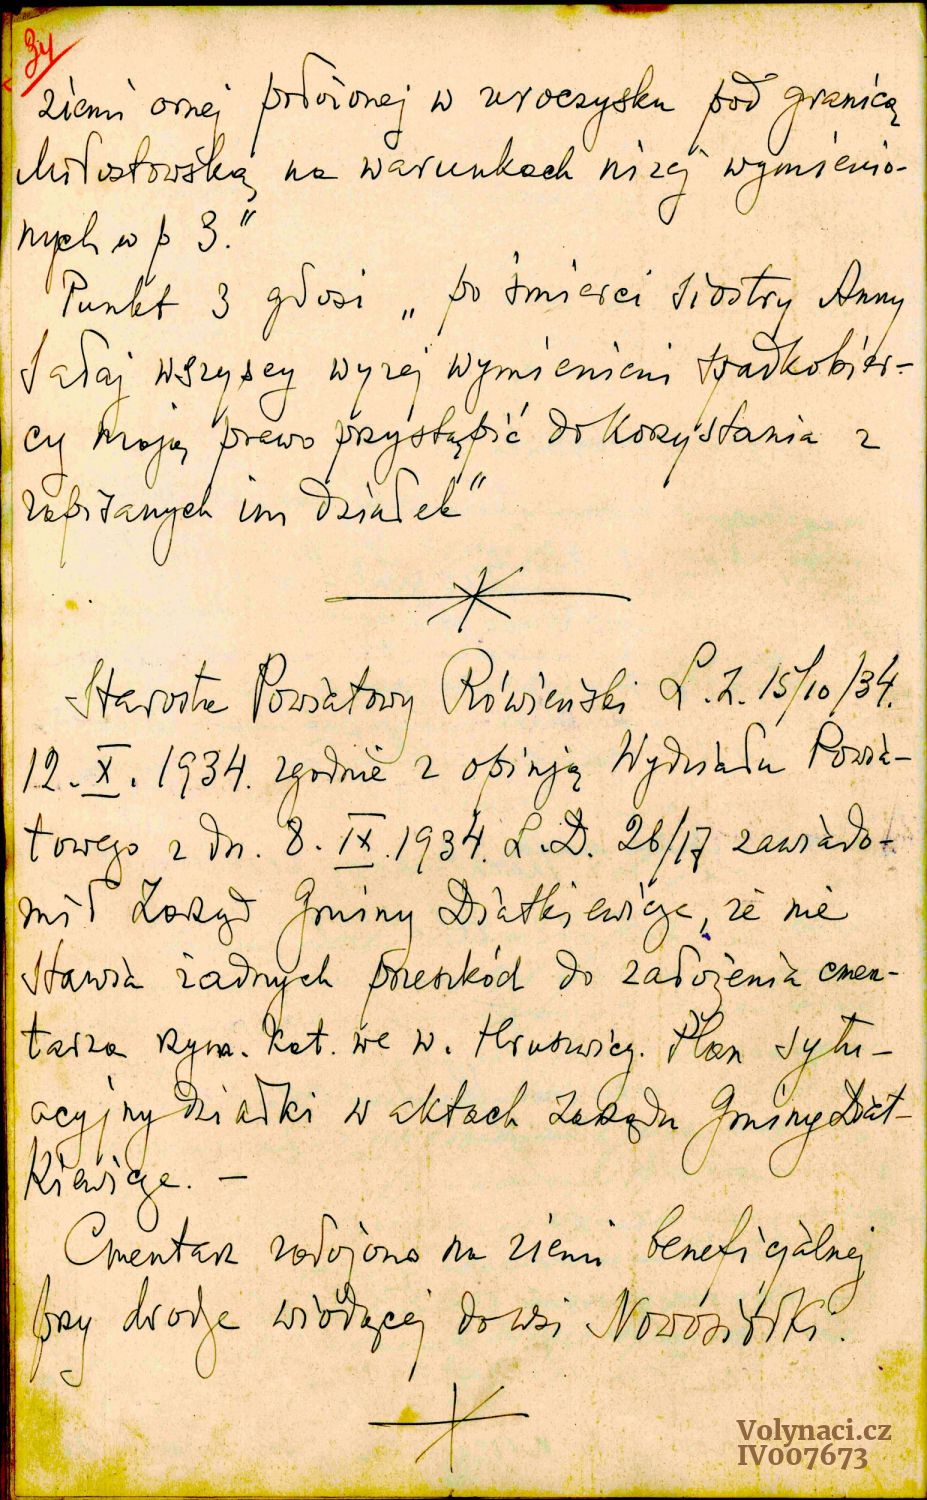 34
ziemi ornej położonej w uroczysku pod granicą
Miłostowską na warunkach niżej wymienio-
nych w p 3."
Punkt 3 głosi „po śmierci siostry Anny
Sałaj wszyscy wyżej wymienieni spadkobier-
cy mają prawo przystąpić do korzystania z
zapisanych im działek"
Starosta Powiatowy Rówieński L.Z. 15/10/34.
12. X. 1934. zgodnie z opinją Wydziału Powia-
towego z dn. 8. IX. 1934. L.D. 26/17 zawiado-
mił Zarząd Gminy Diatkiewicze, że nie
stawia żadnych przeszkód do założenia cmen-
tarza rzym. kat. we w. Hruszwicy. Plan sytu-
acyjny działki w aktach Zarządu Gminy Diat-
kiewicze. —
Cmentarz założono na ziemi beneficjalnej
przy drodze wiodącej do wsi Nowosiółki.
Volynaci.cz
IV007673